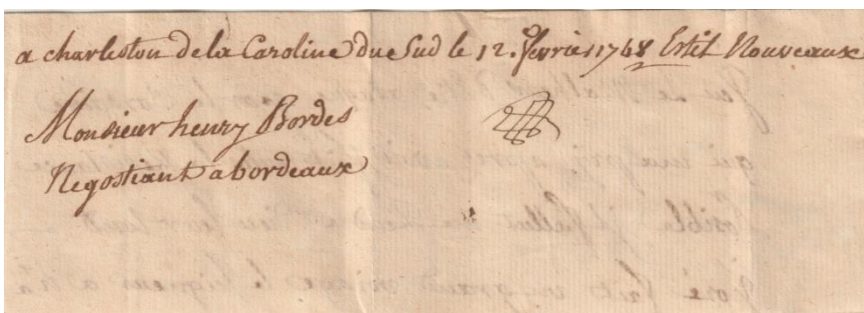 a charleston de la Caroline du Sud le 12. fevrier 1768 Estil Nouveaux
Monsieur henry Bordes
Negostiant a bordeaux